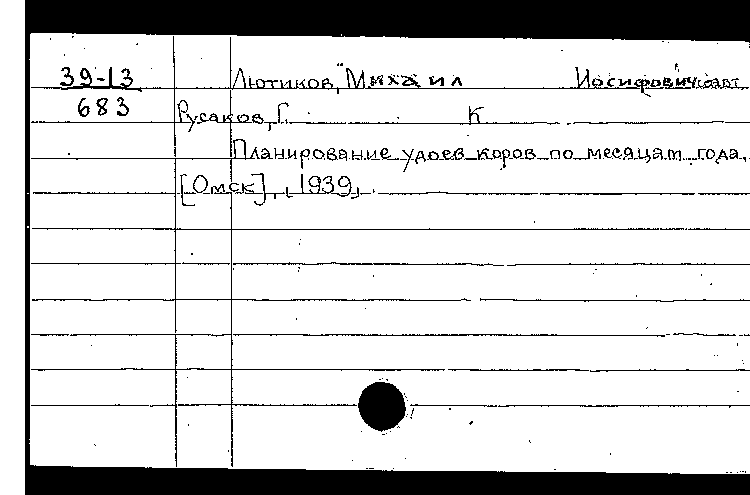 39-13
683
Лютиков, Михаил Иосифович соавт.
Русаков, Г. К
Планирование удоев коров по месяцам года.
[Омск], 1939.